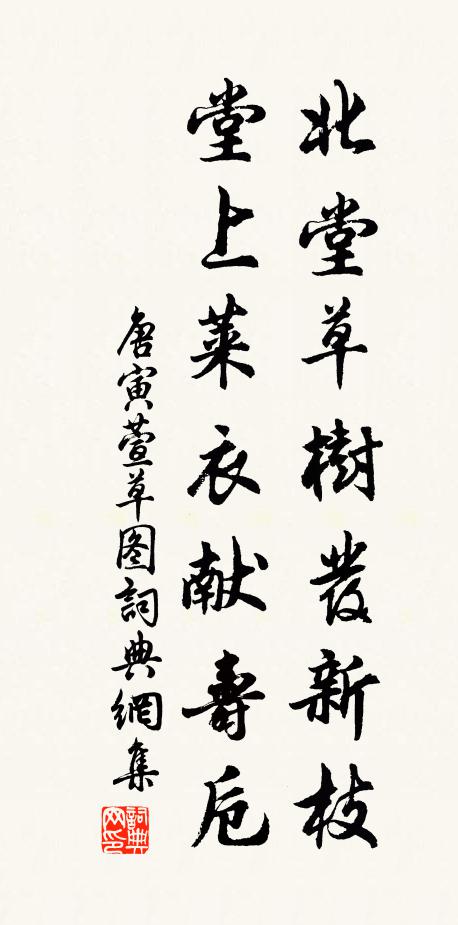 北堂草樹發新枝
堂上萊衣献壽卮
唐寅萱草图詞典網集
詞典网印